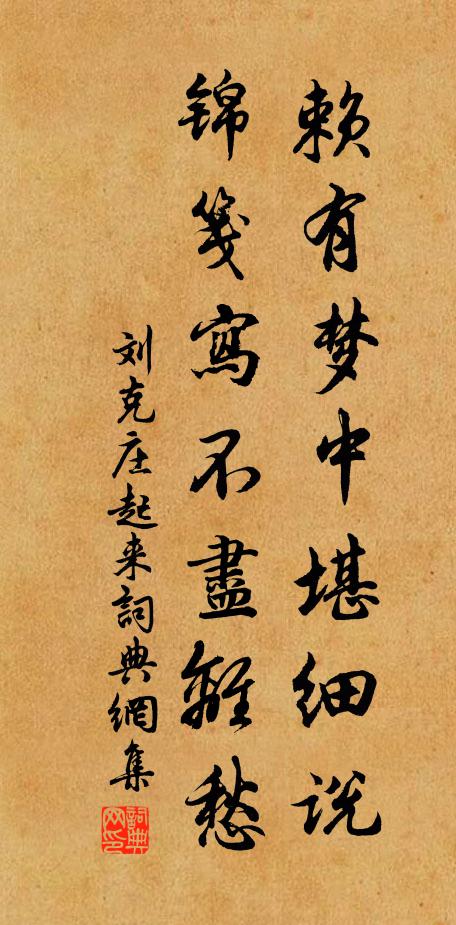 赖有梦中堪细说
锦笺寫不盡離愁
刘克庄起来詞典網集
詞典网印